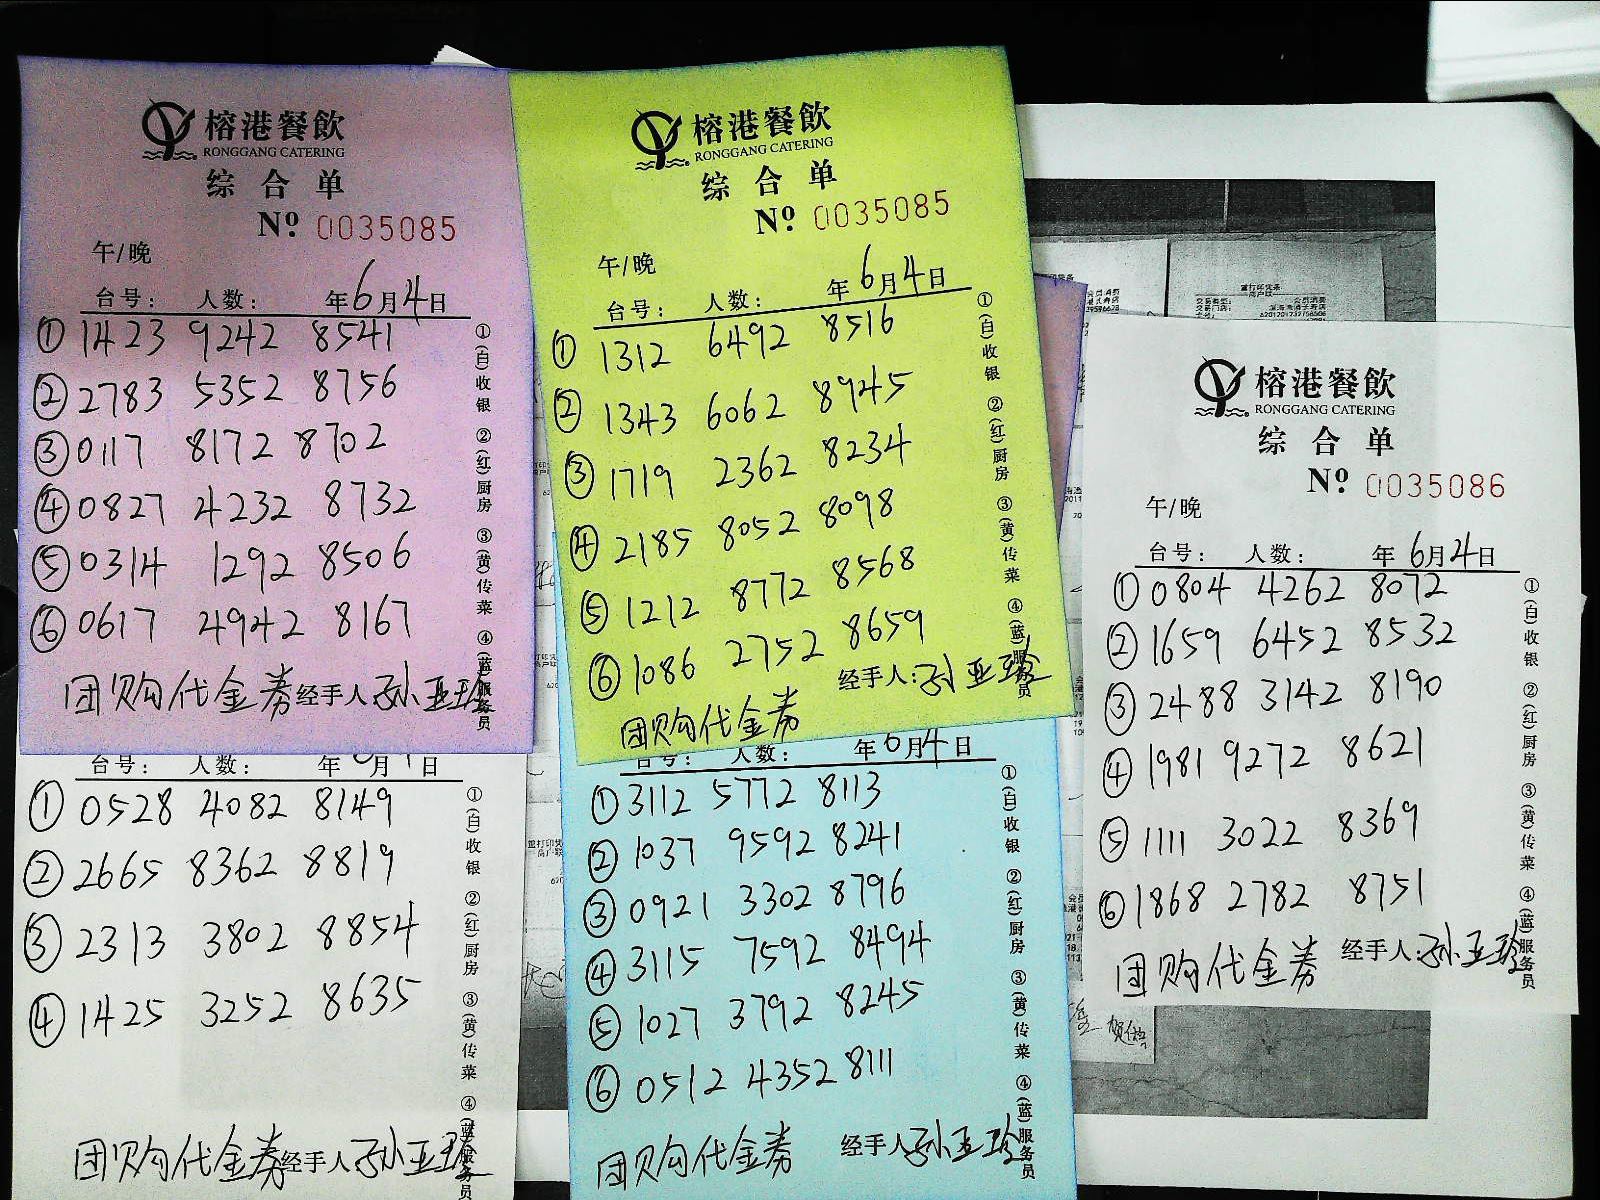 榕港餐飲
RONGGANG CATERING
综合单
Nº 0035085
午/晚
台号： 人数： 年6月4日
① 1423 9242 8541
② 2783 5352 8756
③ 0117 8172 8702
④ 0827 4232 8732
⑤ 0314 1292 8506
⑥ 0617 4942 8167
团购代金券 经手人 孙亚玲
①(白)收银 ②(红)厨房 ③(黄)传菜 ④(蓝)服务员
榕港餐飲
RONGGANG CATERING
综合单
Nº 0035085
午/晚
台号： 人数： 年6月4日
① 1312 6492 8516
② 1343 6062 8945
③ 1719 2362 8234
④ 2185 8052 8098
⑤ 1212 8772 8568
⑥ 1086 2752 8659
经手人：孙亚玲
团购代金券
①(白)收银 ②(红)厨房 ③(黄)传菜 ④(蓝)服务员
榕港餐飲
RONGGANG CATERING
综合单
Nº 0035086
午/晚
台号： 人数： 年6月4日
① 0804 4262 8072
② 1659 6452 8532
③ 2488 3142 8190
④ 1981 9272 8621
⑤ 1111 3022 8369
⑥ 1868 2782 8751
团购代金券 经手人：孙亚玲
①(白)收银 ②(红)厨房 ③(黄)传菜 ④(蓝)服务员
台号： 人数： 年 月 日
① 0528 4082 8149
② 2665 8362 8819
③ 2313 3802 8854
④ 1425 3252 8635
团购代金券 经手人 孙亚玲
①(白)收银 ②(红)厨房 ③(黄)传菜 ④(蓝)服务员
台号： 人数： 年6月4日
① 3112 5772 8113
② 1037 9592 8241
③ 0921 3302 8796
④ 3115 7592 8494
⑤ 1027 3792 8245
⑥ 0512 4352 8111
团购代金券 经手人 孙亚玲
①(白)收银 ②(红)厨房 ③(黄)传菜 ④(蓝)服务员